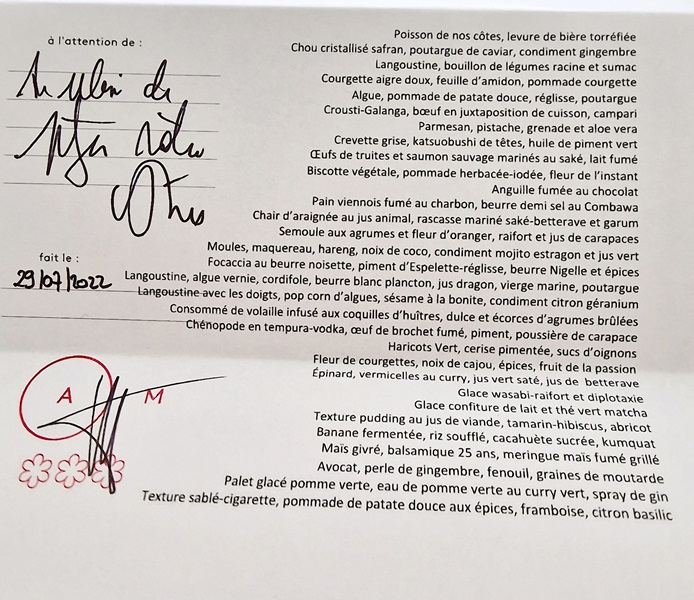 à l'attention de :
fait le :
29/07/2022
A M
Poisson de nos côtes, levure de bière torréfiée
Chou cristallisé safran, poutargue de caviar, condiment gingembre
Langoustine, bouillon de légumes racine et sumac
Courgette aigre doux, feuille d'amidon, pommade courgette
Algue, pommade de patate douce, réglisse, poutargue
Crousti-Galanga, bœuf en juxtaposition de cuisson, campari
Parmesan, pistache, grenade et aloe vera
Crevette grise, katsuobushi de têtes, huile de piment vert
Œufs de truites et saumon sauvage marinés au saké, lait fumé
Biscotte végétale, pommade herbacée-iodée, fleur de l'instant
Anguille fumée au chocolat
Pain viennois fumé au charbon, beurre demi sel au Combawa
Chair d'araignée au jus animal, rascasse mariné saké-betterave et garum
Semoule aux agrumes et fleur d'oranger, raifort et jus de carapaces
Moules, maquereau, hareng, noix de coco, condiment mojito estragon et jus vert
Focaccia au beurre noisette, piment d'Espelette-réglisse, beurre Nigelle et épices
Langoustine, algue vernie, cordifole, beurre blanc plancton, jus dragon, vierge marine, poutargue
Langoustine avec les doigts, pop corn d'algues, sésame à la bonite, condiment citron géranium
Consommé de volaille infusé aux coquilles d'huîtres, dulce et écorces d'agrumes brûlées
Chénopode en tempura-vodka, œuf de brochet fumé, piment, poussière de carapace
Haricots Vert, cerise pimentée, sucs d'oignons
Fleur de courgettes, noix de cajou, épices, fruit de la passion
Épinard, vermicelles au curry, jus vert saté, jus de betterave
Glace wasabi-raifort et diplotaxie
Glace confiture de lait et thé vert matcha
Texture pudding au jus de viande, tamarin-hibiscus, abricot
Banane fermentée, riz soufflé, cacahuète sucrée, kumquat
Maïs givré, balsamique 25 ans, meringue maïs fumé grillé
Avocat, perle de gingembre, fenouil, graines de moutarde
Palet glacé pomme verte, eau de pomme verte au curry vert, spray de gin
Texture sablé-cigarette, pommade de patate douce aux épices, framboise, citron basilic